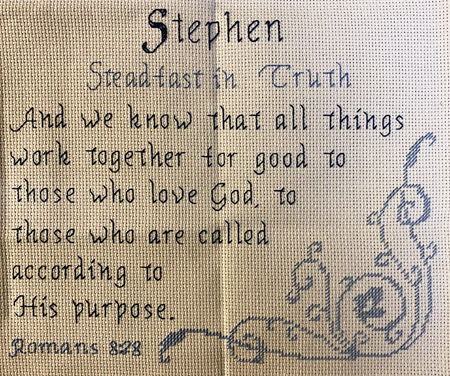 Stephen
Steadfast in Truth
And we know that all things
work together for good to
those who love God, to
those who are called
according to
His purpose.
Romans 8:28